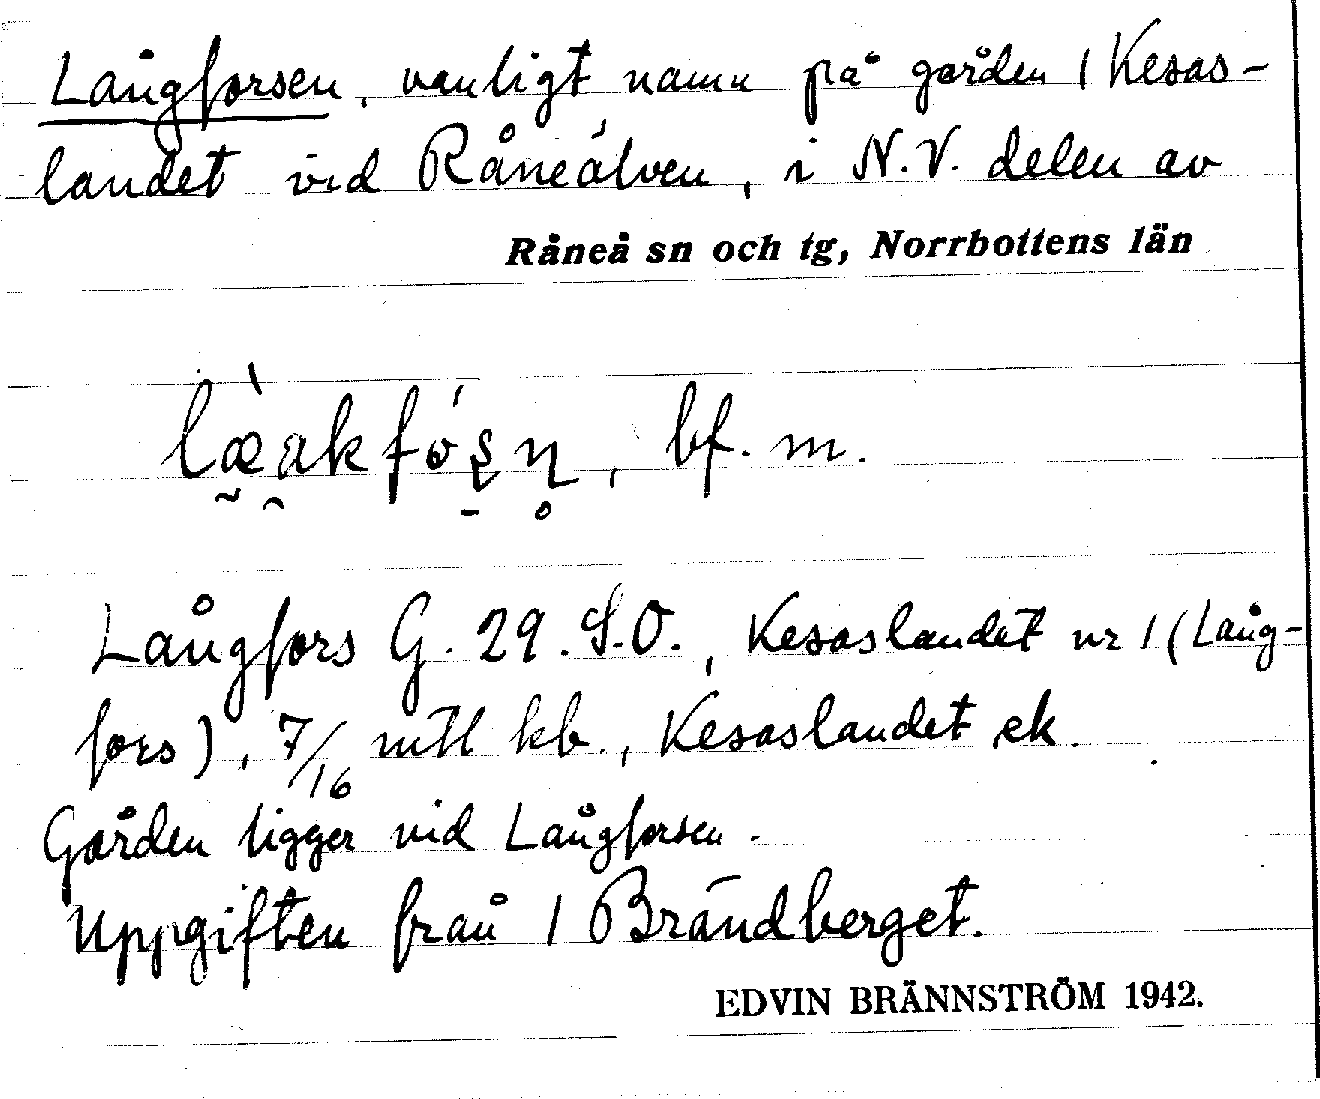 Långforsen, vanligt namn på gården 1 Kesas-
landet vid Råneälven, i N.V. delen av
Råneå sn och tg, Norrbottens län
bf. m.
Långfors G. 29. S.O., Kesaslandet nr 1 (Lång-
fors), 7/16 mtl kb., Kesaslandet ek.
Gården ligger vid Långforsen.
Uppgiften från 1 Brändberget.
EDVIN BRÄNNSTRÖM 1942.